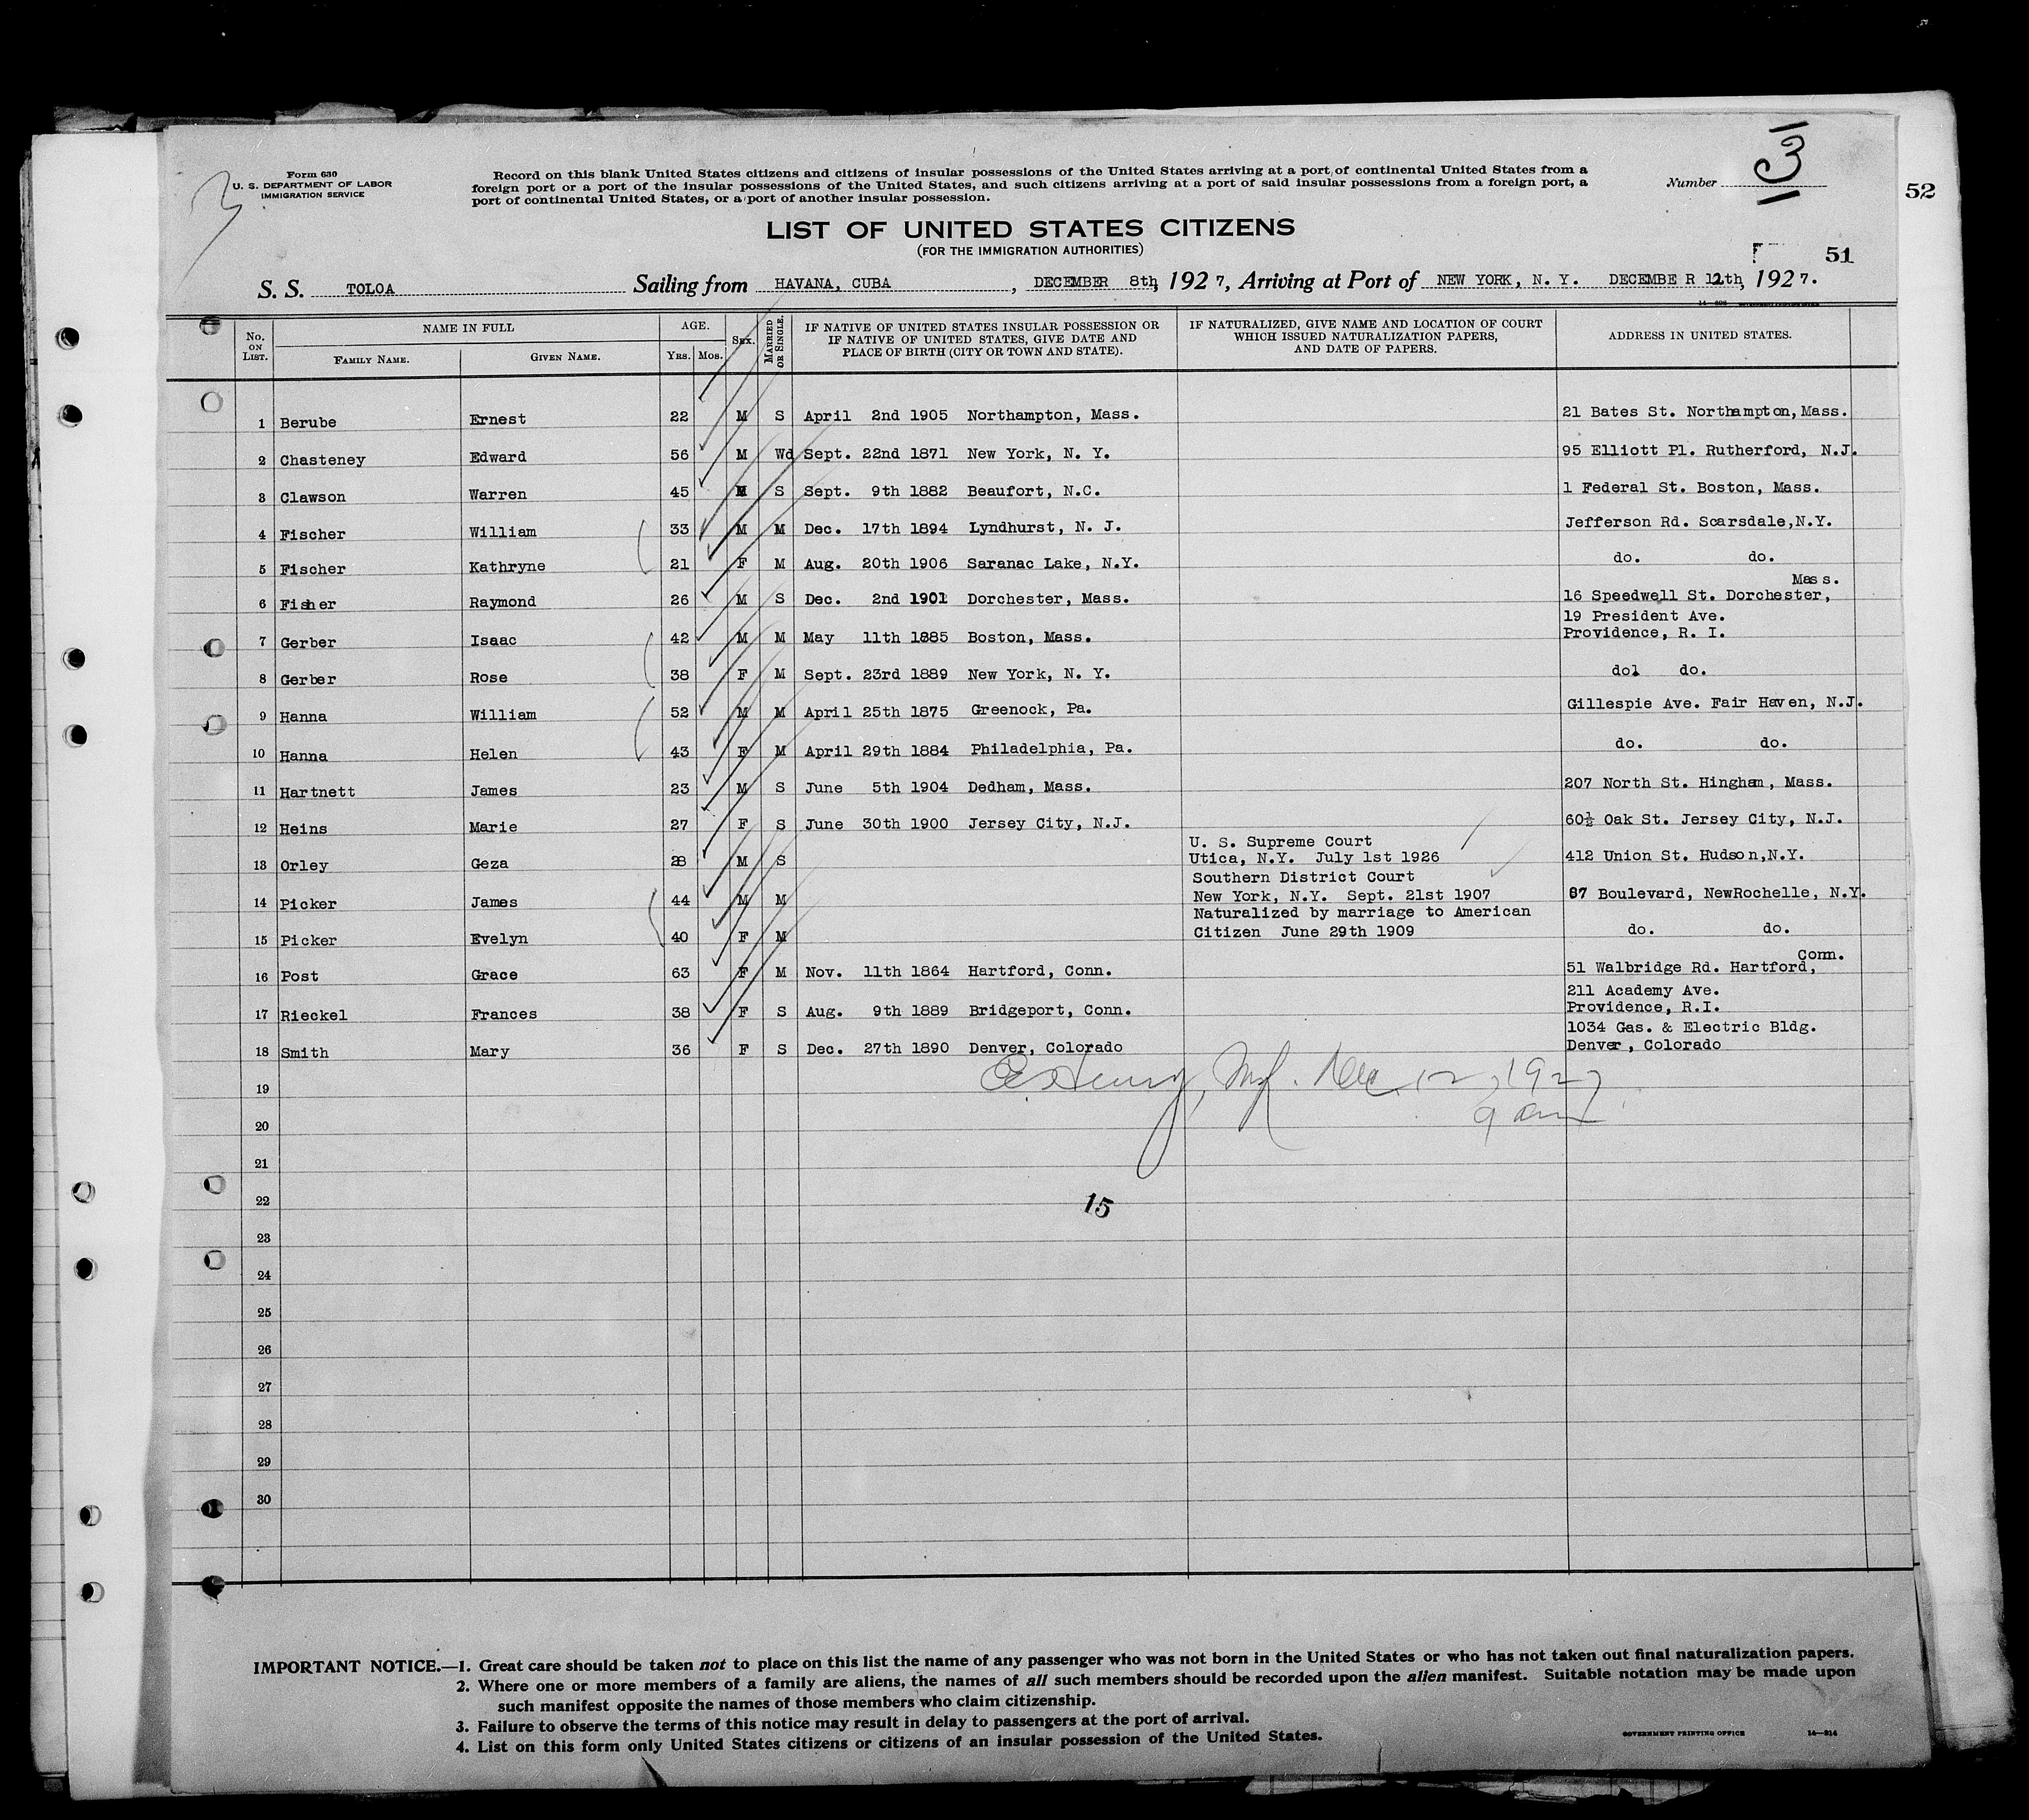 52
Form 630
U. S. DEPARTMENT OF LABOR
IMMIGRATION SERVICE
Record on this blank United States citizens and citizens of insular possessions of the United States arriving at a port of continental United States from a
foreign port or a port of the insular possessions of the United States, and such citizens arriving at a port of said insular possessions from a foreign port, a
port of continental United States, or a port of another insular possession.
Number
3
LIST OF UNITED STATES CITIZENS
(FOR THE IMMIGRATION AUTHORITIES)
51
S. S. TOLOA Sailing from HAVANA, CUBA, DECEMBER 8th, 1927, Arriving at Port of NEW YORK, N. Y. DECEMBE R 12th, 1927.
No. ON LIST. NAME IN FULL FAMILY NAME. GIVEN NAME. AGE. YRS. MOS. SEX. MARRIED OR SINGLE. IF NATIVE OF UNITED STATES INSULAR POSSESSION OR IF NATIVE OF UNITED STATES, GIVE DATE AND PLACE OF BIRTH (CITY OR TOWN AND STATE). IF NATURALIZED, GIVE NAME AND LOCATION OF COURT WHICH ISSUED NATURALIZATION PAPERS, AND DATE OF PAPERS. ADDRESS IN UNITED STATES.
1 Berube Ernest 22 M S April 2nd 1905 Northampton, Mass. 21 Bates St. Northampton, Mass.
2 Chasteney Edward 56 M Wd Sept. 22nd 1871 New York, N. Y. 95 Elliott Pl. Rutherford, N.J.
3 Clawson Warren 45 M S Sept. 9th 1882 Beaufort, N.C. 1 Federal St. Boston, Mass.
4 Fischer William 33 M M Dec. 17th 1894 Lyndhurst, N. J. Jefferson Rd. Scarsdale,N.Y.
5 Fischer Kathryne 21 F M Aug. 20th 1906 Saranac Lake, N.Y. do. do.
6 Fisher Raymond 26 M S Dec. 2nd 1901 Dorchester, Mass. 16 Speedwell St. Dorchester, Mass.
7 Gerber Isaac 42 M M May 11th 1885 Boston, Mass. 19 President Ave. Providence, R. I.
8 Gerber Rose 38 F M Sept. 23rd 1889 New York, N. Y. dol do.
9 Hanna William 52 M M April 25th 1875 Greenock, Pa. Gillespie Ave. Fair Haven, N.J.
10 Hanna Helen 43 F M April 29th 1884 Philadelphia, Pa. do. do.
11 Hartnett James 23 M S June 5th 1904 Dedham, Mass. 207 North St. Hingham, Mass.
12 Heins Marie 27 F S June 30th 1900 Jersey City, N.J. 60½ Oak St. Jersey City, N.J.
13 Orley Geza 28 M S U. S. Supreme Court Utica, N.Y. July 1st 1926 412 Union St. Hudson,N.Y.
14 Picker James 44 M M Southern District Court New York, N.Y. Sept. 21st 1907 67 Boulevard, NewRochelle, N.Y.
15 Picker Evelyn 40 F M Naturalized by marriage to American Citizen June 29th 1909 do. do.
16 Post Grace 63 F M Nov. 11th 1864 Hartford, Conn. 51 Walbridge Rd. Hartford, Conn.
17 Rieckel Frances 38 F S Aug. 9th 1889 Bridgeport, Conn. 211 Academy Ave. Providence, R.I.
18 Smith Mary 36 F S Dec. 27th 1890 Denver, Colorado 1034 Gas. & Electric Bldg. Denver, Colorado
19 Dec 12, 1927
9 am
20
21
22
15
23
24
25
26
27
28
29
30
IMPORTANT NOTICE.—1. Great care should be taken not to place on this list the name of any passenger who was not born in the United States or who has not taken out final naturalization papers.
2. Where one or more members of a family are aliens, the names of all such members should be recorded upon the alien manifest. Suitable notation may be made upon
such manifest opposite the names of those members who claim citizenship.
3. Failure to observe the terms of this notice may result in delay to passengers at the port of arrival.
4. List on this form only United States citizens or citizens of an insular possession of the United States.
GOVERNMENT PRINTING OFFICE 14—214